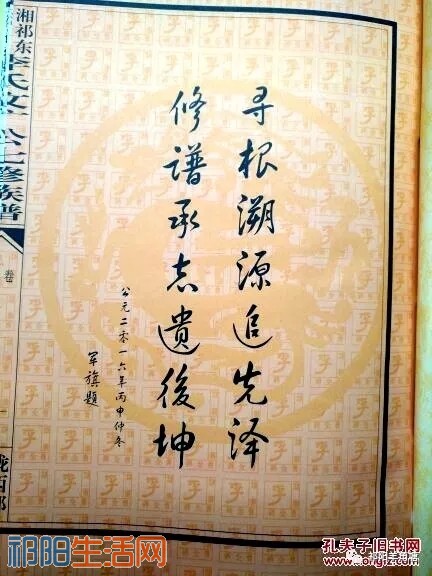 寻根溯源追先泽
修谱承志遗後坤
公元二零一六年丙申仲冬
军旗题
湘祁东李氏文
公七修族谱
卷
陇西郡
祁阳生活网
孔夫子旧书网